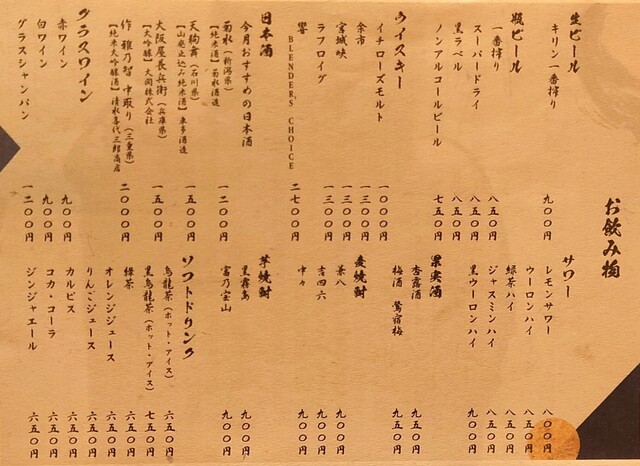 お飲み物
生ビール
キリン一番搾り 九〇〇円
瓶ビール
一番搾り 八五〇円
スーパードライ 八五〇円
黒ラベル 八五〇円
ノンアルコールビール 七五〇円
ウイスキー
イチローズモルト 一〇〇〇円
余市 一三〇〇円
宮城峡 一三〇〇円
ラフロイグ 一三〇〇円
響 BLENDER'S CHOICE 二七〇〇円
日本酒
今月おすすめの日本酒
菊水(新潟県) 一二〇〇円
[純米酒]菊水酒造
天狗舞(石川県) 一五〇〇円
[山廃仕込み純米酒]車多酒造
大阪屋長兵衛(兵庫県) 一五〇〇円
[大吟醸]大関株式会社
作 雅乃智 中取り(三重県) 二〇〇〇円
[純米大吟醸酒]清水清三郎商店
グラスワイン
赤ワイン 九〇〇円
白ワイン 九〇〇円
グラスシャンパン 一二〇〇円
サワー
レモンサワー 八〇〇円
ウーロンハイ 八五〇円
緑茶ハイ 八五〇円
ジャスミンハイ 八五〇円
黒ウーロンハイ 九〇〇円
果実酒
杏露酒 九五〇円
梅酒 鶯宿梅 九五〇円
麦焼酎
兼八 九〇〇円
吉四六 九〇〇円
中々 九〇〇円
芋焼酎
黒霧島 九〇〇円
富乃宝山 九〇〇円
ソフトドリンク
烏龍茶(ホット・アイス) 六五〇円
黒烏龍茶(ホット・アイス) 七五〇円
緑茶 六五〇円
オレンジジュース 六五〇円
りんごジュース 六五〇円
カルピス 六五〇円
コカ・コーラ 六五〇円
ジンジャエール 六五〇円